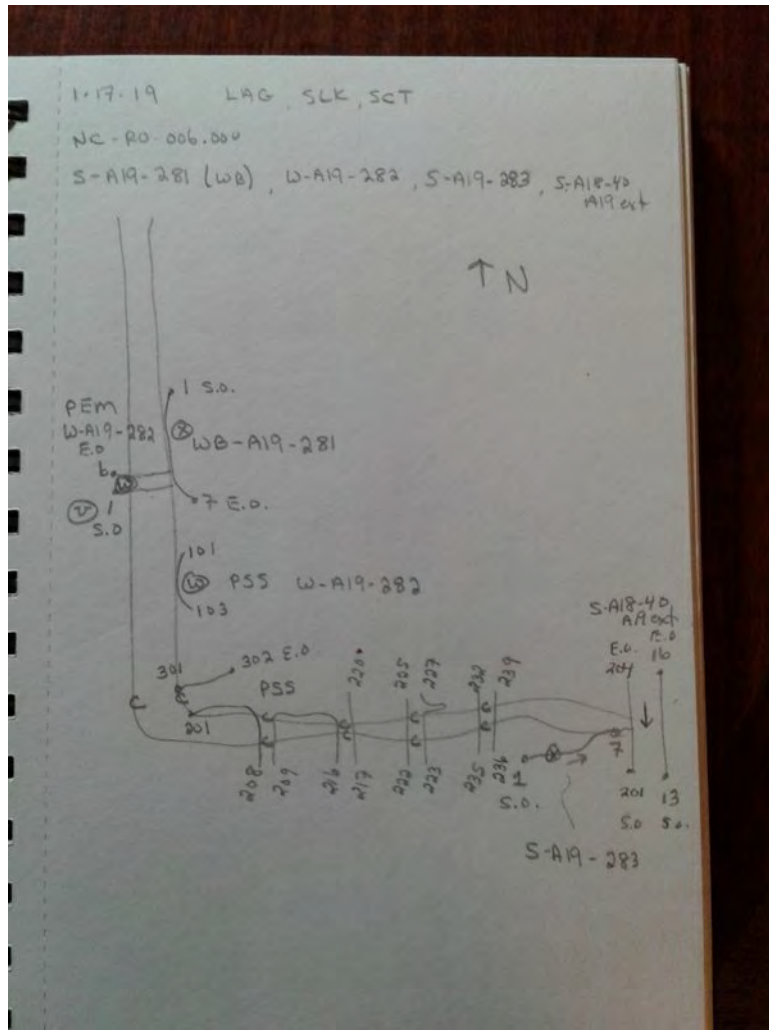 1-17-19 LAG, SLK, SCT
NC-RO-006.000
S-A19-281 (WB), W-A19-282, S-A19-283, S-A18-40
A19 ext
↑ N
1 S.O.
PEM
W-A19-282
E.O
WB-A19-281
6
W
1
S.O
7 E.O.
101
PSS W-A19-282
103
S-A18-40
A19 ext
E.O
16
E.O.
204
301
302 E.O
220
205
227
232
239
PSS
201
208
209
216
217
222
223
235
236
1
S.O.
7
201
13
S.O
S.O.
S-A19-283